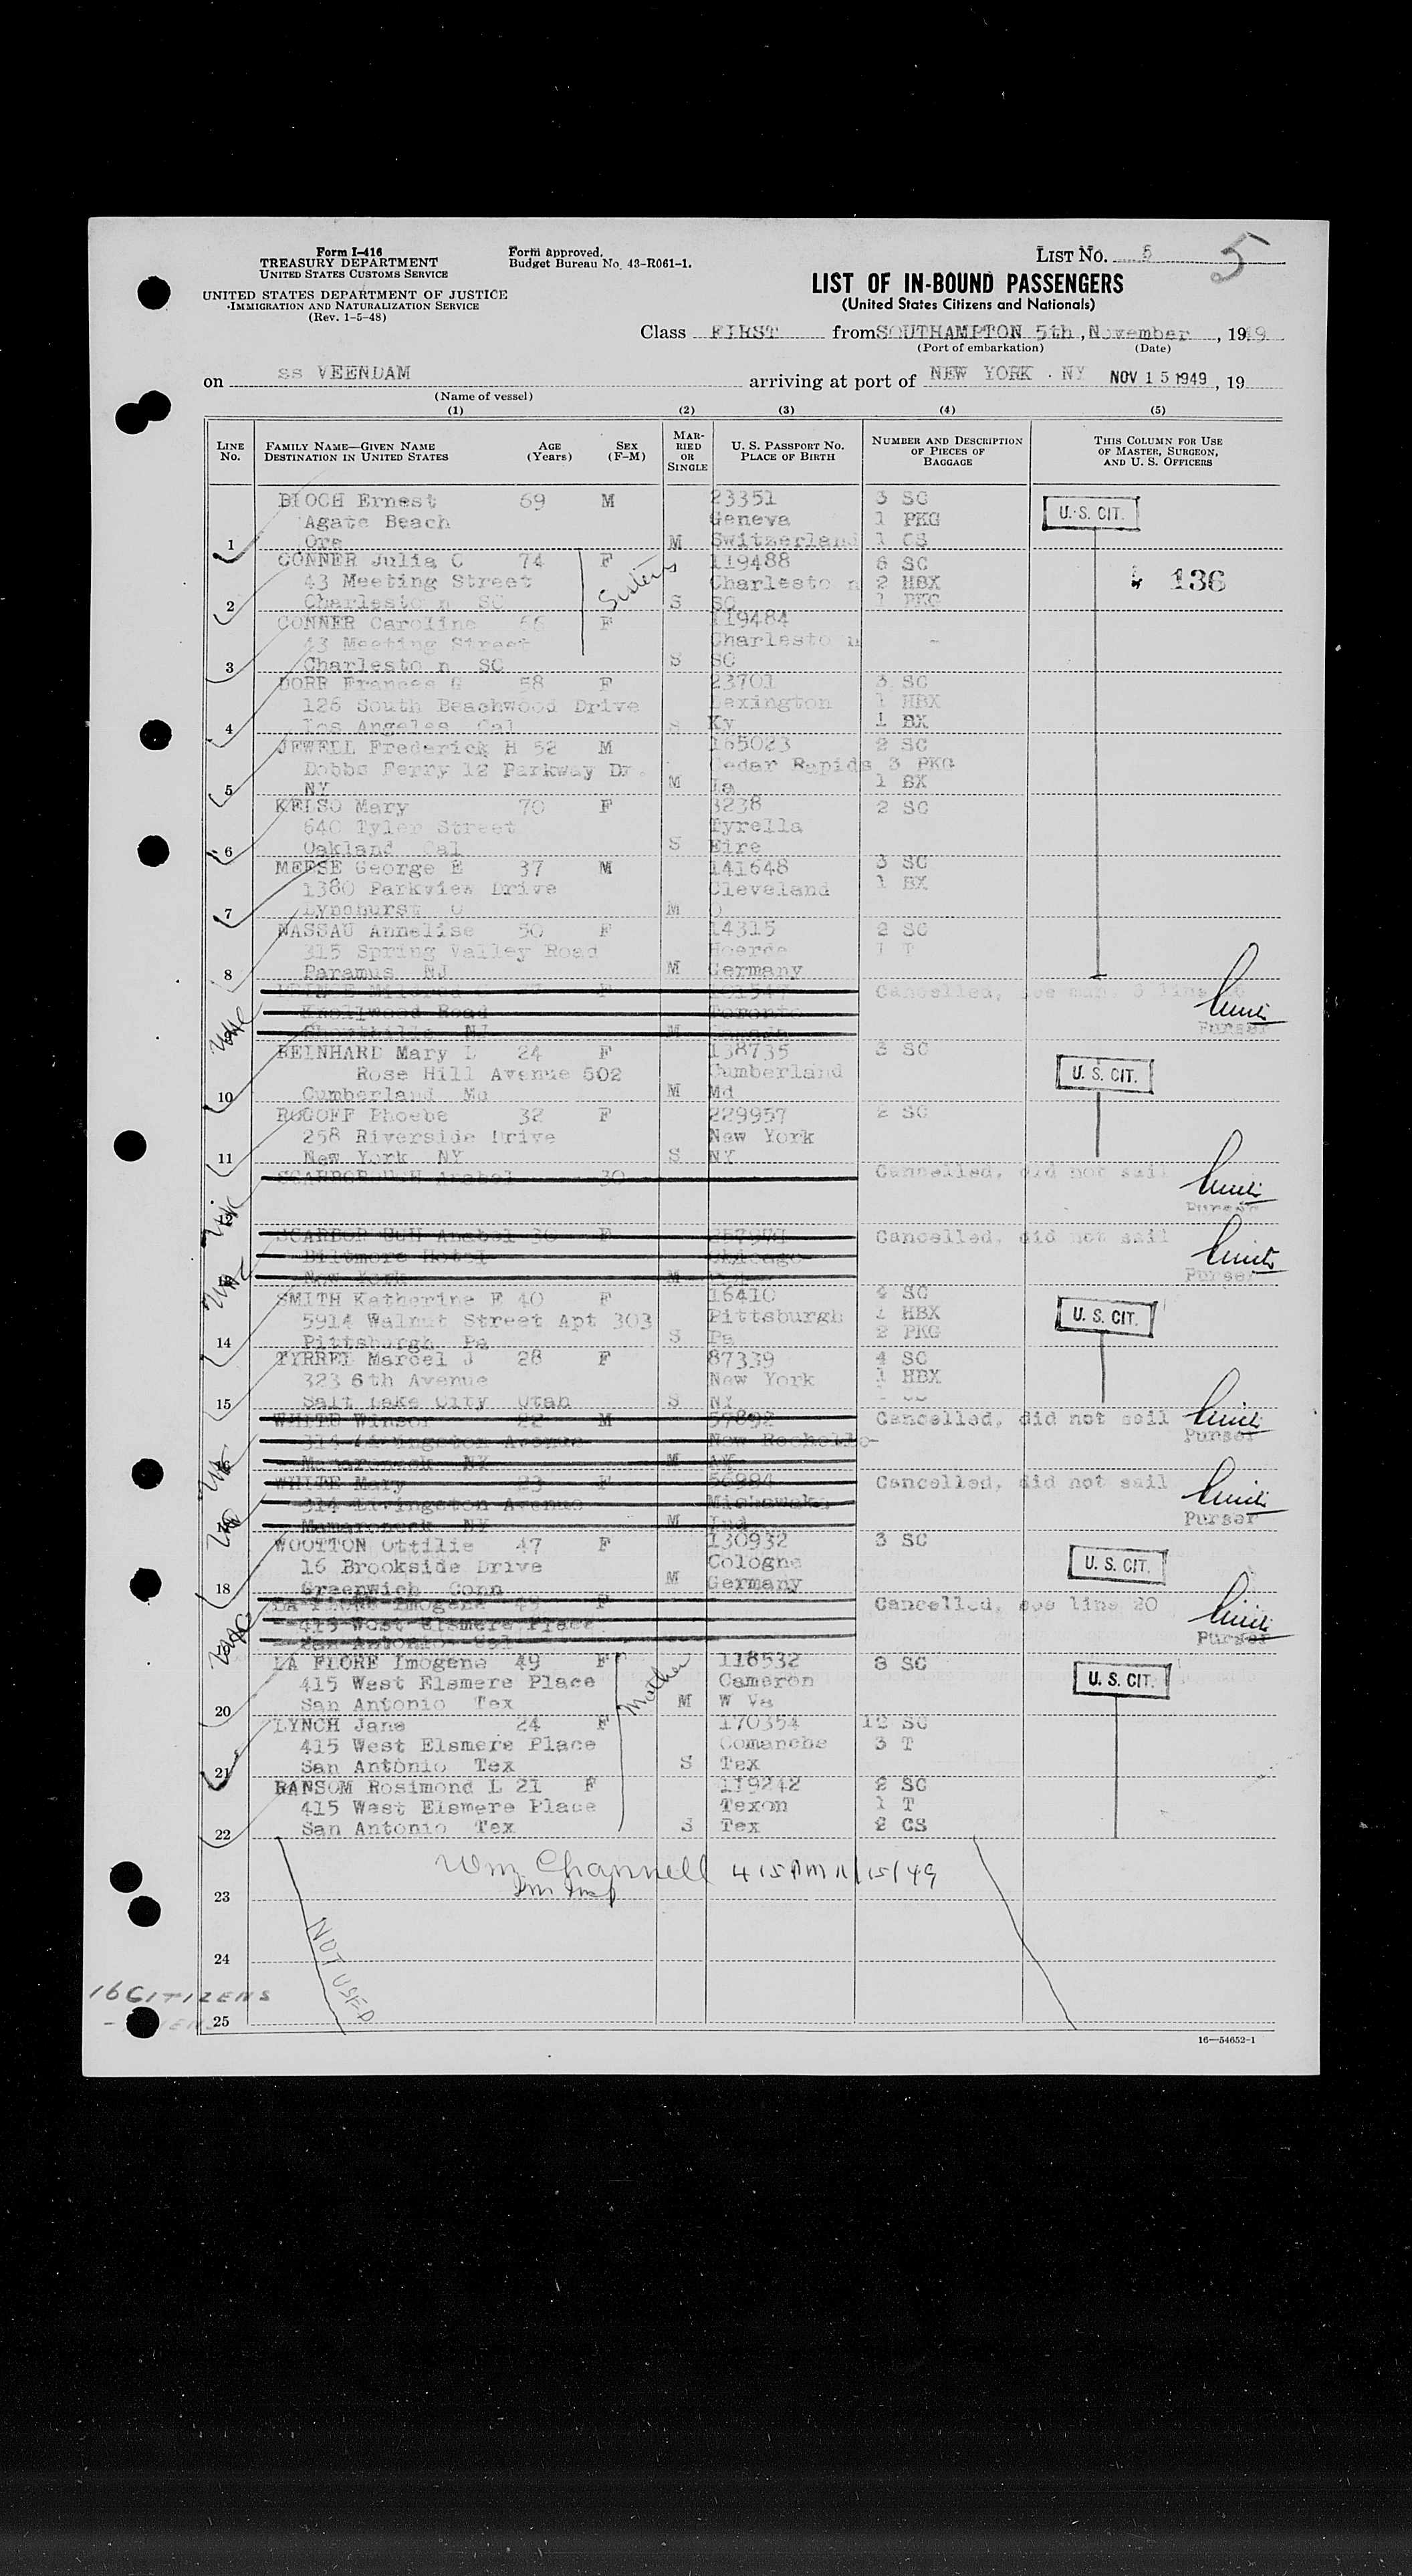 Form I-416
TREASURY DEPARTMENT
UNITED STATES CUSTOMS SERVICE
UNITED STATES DEPARTMENT OF JUSTICE
IMMIGRATION AND NATURALIZATION SERVICE
(Rev. 1-5-48)
Form approved.
Budget Bureau No. 43-R061-1.
LIST NO. 5 5
LIST OF IN-BOUND PASSENGERS
(United States Citizens and Nationals)
Class FIRST from SOUTHAMPTON 5th, November, 1949
(Port of embarkation) (Date)
on ss VEENDAM arriving at port of NEW YORK . NY NOV 15 1949, 19
(Name of vessel)
(1) (2) (3) (4) (5)
LINE No. FAMILY NAME—GIVEN NAME DESTINATION IN UNITED STATES AGE (Years) SEX (F-M) MARRIED OR SINGLE U. S. PASSPORT NO. PLACE OF BIRTH NUMBER AND DESCRIPTION OF PIECES OF BAGGAGE THIS COLUMN FOR USE OF MASTER, SURGEON, AND U. S. OFFICERS
BLOCH Ernest 69 M 23351 3 SC
Agate Beach Geneva 1 PKG U. S. CIT.
1 Ore M Switzerland 1 CS
CONNER Julia C 74 F 119488 6 SC
43 Meeting Street Sisters Charlesto n 2 HBX 136
2 Charlesto n SC S SC 1 PKG
CONNER Caroline 66 F 119484
43 Meeting Street Charlesto n -
3 Charlesto n SC S SC
DORR Frances G 58 F 23701 3 SC
126 South Beachwood Drive Lexington 1 HBX
4 Los Angeles Cal S Ky 1 BX
JEWELL Frederick H 52 M 165023 2 SC
Dobbs Ferry 12 Parkway Dr. Cedar Rapids 3 PKG
5 NY M Ia 1 BX
KELSO Mary 70 F 3238 2 SC
640 Tyler Street Tyrella
6 Oakland Cal S Eire
MEESE George E 37 M 141648 3 SC
1380 Parkview Drive Cleveland 1 BX
7 Lyndhurst O M O
NASSAU Annelise 50 F 14315 2 SC
315 Spring Valley Road Hoerde 1 T
8 Paramus NJ M Germany
PRINCE Mildred F Cancelled, see
Knollwood Road Toronto
NJ M Canada Purser
REINHARD Mary L 24 F 138735 3 SC
Rose Hill Avenue 502 Cumberland U. S. CIT.
10 Cumberland Md M Md
ROGOFF Phoebe 32 F 229957 2 SC
258 Riverside Drive New York
11 New York NY S NY
SCARBOROUGH Anabel 30 Cancelled, did not sail
Purser
SCARBOROUGH Anabel 30 F Cancelled, did not sail
Biltmore Hotel Chicago
New York M Purser
SMITH Katherine E 40 F 16410 4 SC
5914 Walnut Street Apt 303 Pittsburgh 1 HBX U. S. CIT.
14 Pittsburgh Pa S Pa 2 PKG
TYRREL Marcel J 28 F 87339 4 SC
323 6th Avenue New York 1 HBX
15 Salt Lake City Utah S NY
WHITE Winsor 22 M 57892 Cancelled, did not sail
314 Livingston Avenue New Rochelle Purser
Mamaroneck NY M NY
WHITE Mary 23 F 56994 Cancelled, did not sail
314 Livingston Avenue Mishawaka
Mamaroneck NY M Ind Purser
WOOTTON Ottilie 47 F 130932 3 SC
16 Brookside Drive Cologne U. S. CIT.
18 Greenwich Conn M Germany
LA FLORE Imogene 49 F Cancelled, see line 20
415 West Elsmere Place
San Antonio Purser
LA FLORE Imogene 49 F 118532 8 SC
415 West Elsmere Place Mother Cameron U. S. CIT.
20 San Antonio Tex M W Va
LYNCH Jane 24 F 170354 12 SC
415 West Elsmere Place Comanche 3 T
21 San Antonio Tex S Tex
RANSOM Rosimond L 21 F 119242 2 SC
415 West Elsmere Place Texon 1 T
22 San Antonio Tex S Tex 2 CS
Wm Channell 415 PM 11/15/49
Imm Insp
23
NOT USED
24
16 CITIZENS
25
16—54652-1